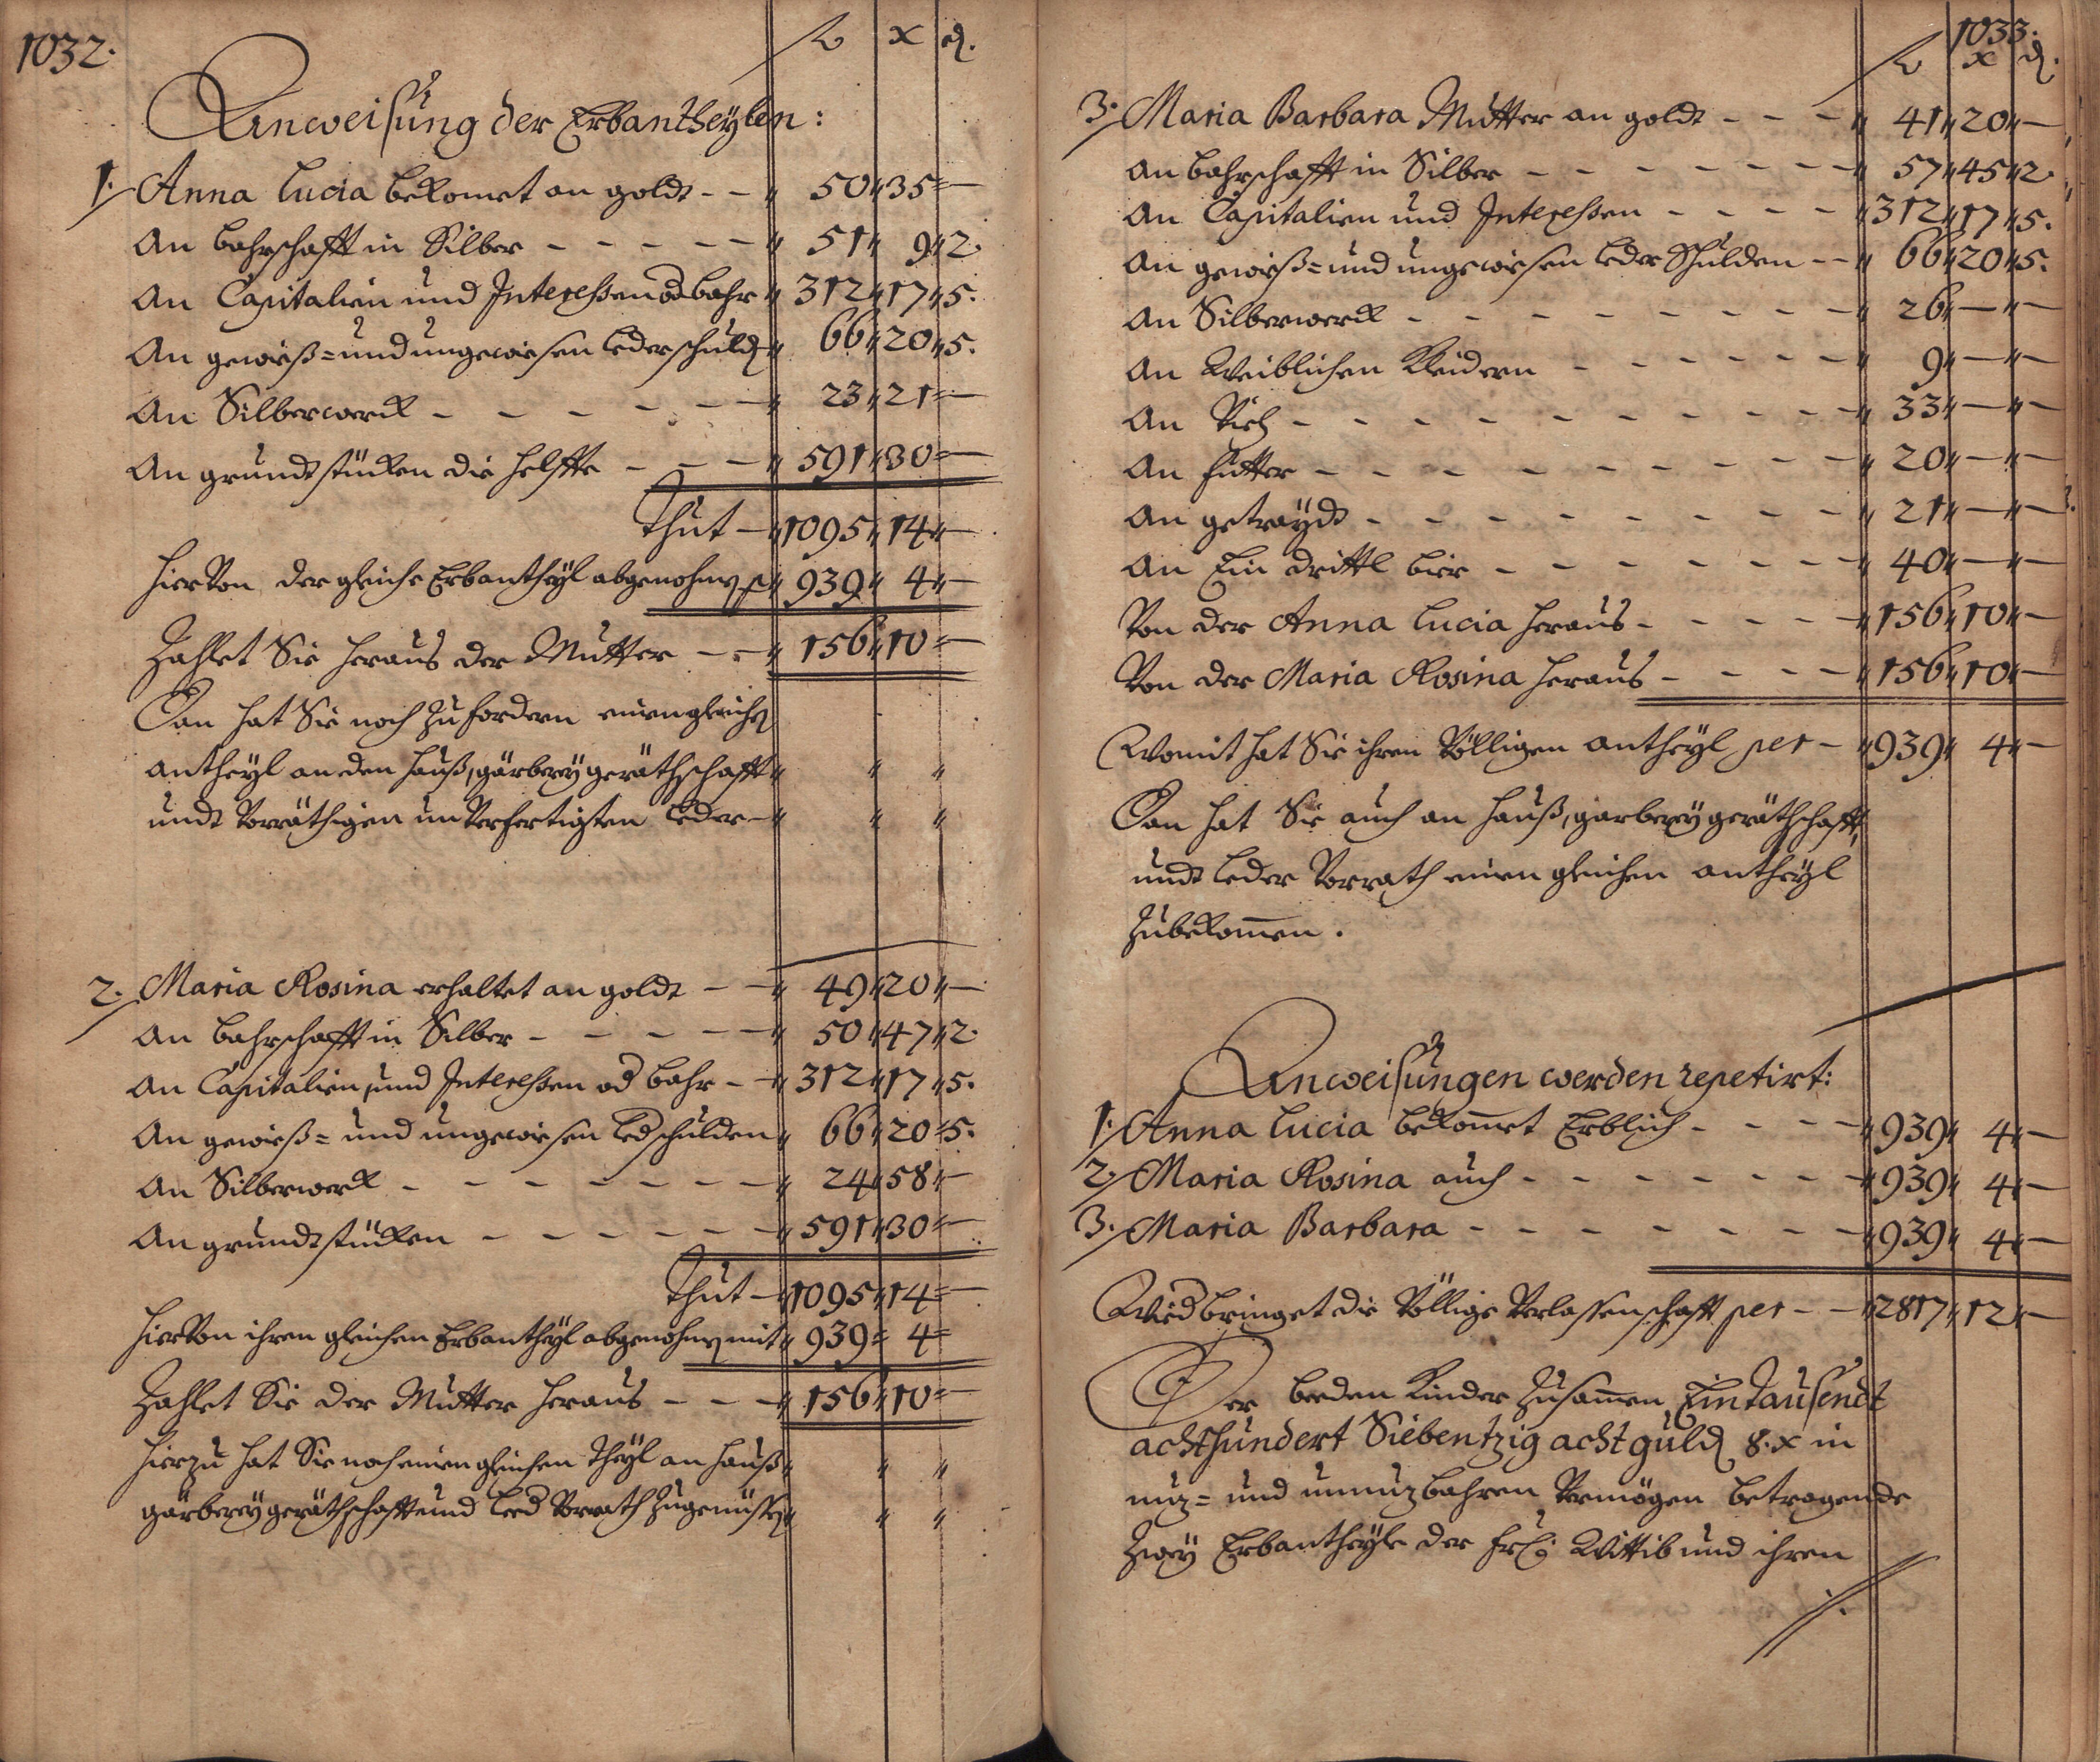 1032.
fl x d.
Anweisung der Erbantheylen:
1. Anna Lucia bekomet an goldt - - " 50 " 35 = —
An bahrschafft in Silber - - - - - " 51 " 9 " 2.
An Capitalien und Interessen od bahr " 312 " 17 " 5.
An gewiß= und ungewiesen Lederschuld " 66 " 20 " 5.
An Silberwerk - - - - - - " 23 " 21 = —
An grundtstüken die helffte - - - " 591 " 30 = —
Thut — " 1095 " 14 " —
hier Von der gleiche Erbantheyl abgenohmen p " 939 " 4 " —
Zahlet Sie heraus der Mutter - - " 156 " 10 = —
Dan hat Sie noch zu fordern einen gleichen
antheyl an den hauß, gärberey geräthschafft " " "
undt Vorräthigen un Verfertigten Leder — " " "
2. Maria Rosina erhaltet an goldt - - " 49 " 20 " —
An bahrschafft in Silber - - - - - " 50 " 47 " 2.
An Capitalien, und Interessen od bahr - " 312 " 17 " 5.
An gewieß= und ungewiesen Led schulden " 66 " 20 = 5.
An Silberwerk - - - - - - - " 24 " 58 " —
An grundtstüken - - - - - - " 591 " 30 = —
Thut — " 1095 " 14 = —
hier Von ihren gleichen Erbantheyl abgenohmen mit " 939 = 4 =
Zahlet Sie der Mutter heraus - - - " 156 " 10 = —
hierzu hat Sie noch einen gleichen theyl an hauß " " "
gärberey geräthschafft und Led Vorrath zugenüssen " " "
1033.
fl x d.
3. Maria Barbara Mutter an goldt - - - " 41 " 20 " —
An bahrschafft in Silber - - - - - - - " 57 " 45 " 2.
An Capitalien und Interessen - - - - " 312 " 17 " 5.
An gewiß= und ungewiesen Leder Schulden - - " 66 " 20 " 5.
An Silberwerk - - - - - - - - " 26 " — " —
An Weiblichen Kleidern - - - - - " 9 " — " —
An Vieh - - - - - - - - - " 33 " — " —
An futter - - - - - - - - - " 20 " — " —
An getrayde - - - - - - - - " 21 " — " —
An Ein drittl bier - - - - - - - " 40 " — " —
Von der Anna Lucia heraus - - - - - " 156 " 10 " —
Von der Maria Rosina heraus - - - - " 156 " 10 " —
Womit hat Sie ihren Völligen antheyl per - " 939 " 4 " —
Dan hat Sie auch an hauß, garberey geräthschafft,
undt Leder Vorrath einen gleichen antheyl
Zubekom̄en.
Anweisungen werden repetirt:
1. Anna Lucia bekom̄et Erblich - - - - " 939 " 4 " —
2. Maria Rosina auch - - - - - - - " 939 " 4 " —
3. Maria Barbara - - - - - - - - " 939 " 4 " —
Wied bringet die Völlige Verlassenschafft per - - " 2817 " 12 " —
Der beeden Kinder zusam̄en Ein tausendt
achthundert Siebentzig acht guld 8. x in
nuz= und unnuzbahren Vermögen betragende
zwey Erbantheyle der Wittib und ihren
./.